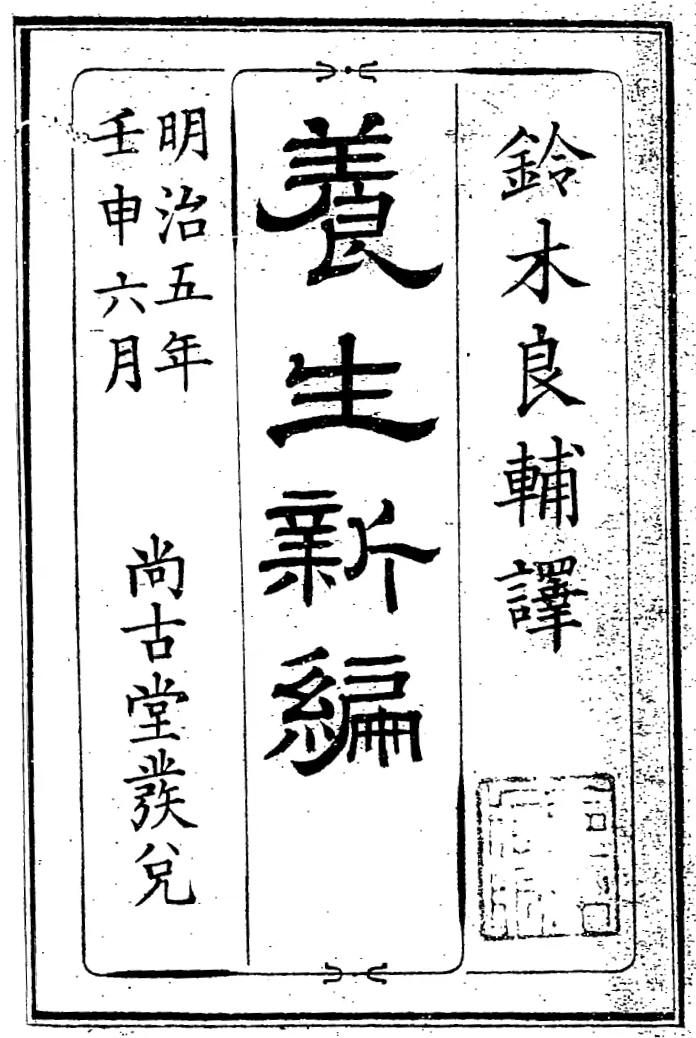 鈴木良輔譯
養生新編
明治五年
壬申六月
尚古堂發兌